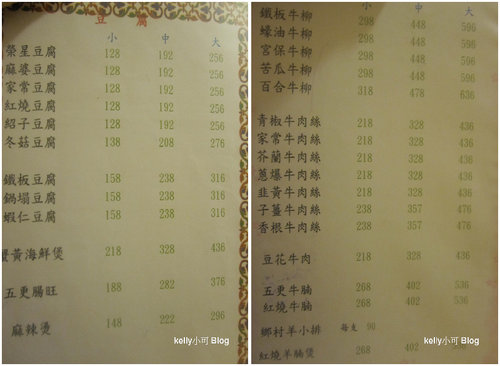 豆 腐
小 中 大
榮星豆腐 128 192 256
麻婆豆腐 128 192 256
家常豆腐 128 192 256
紅燒豆腐 128 192 256
紹子豆腐 128 192 256
冬菇豆腐 138 208 276
鐵板豆腐 158 238 316
鍋塌豆腐 158 238 316
蝦仁豆腐 158 238 316
蟹黃海鮮煲 218 328 436
五更腸旺 188 282 376
麻辣燙 148 222 296
kelly小可 Blog
小 中 大
鐵板牛柳 298 448 596
蠔油牛柳 298 448 596
宮保牛柳 298 448 596
苦瓜牛柳 298 448 596
百合牛柳 318 478 636
青椒牛肉絲 218 328 436
家常牛肉絲 218 328 436
芥蘭牛肉絲 218 328 436
蔥爆牛肉絲 218 328 436
韭黃牛肉絲 218 328 436
子薑牛肉絲 238 357 476
香根牛肉絲 238 357 476
豆花牛肉 218 328 436
五更牛腩 268 402 536
紅燒牛腩 268 402 536
鄉村羊小排 每支 90
紅燒羊腩煲 268 402
kelly小可 Blog